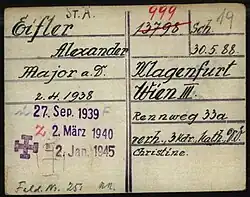 St. A.
999
19
Eifler
13798 Sch.
Alexander
30.5.88
Major a.D.
Klagenfurt
2.4.1938
Wien III.
27. Sep. 1939
Rennweg 33a
2 2. März 1940
verh., 3 Kdr, Kath., D.
2. Jan. 1945
Christine.
Feld. Nr. 251